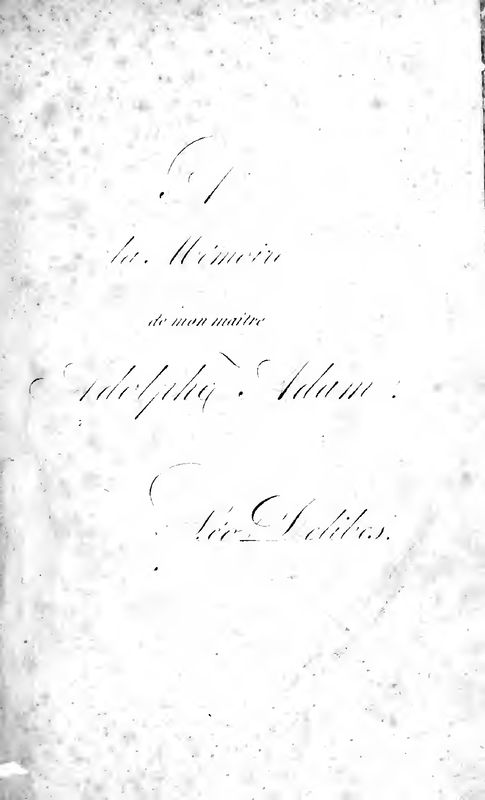 A
la Mémoire
de mon maître
Adolphe Adam.
Léo Delibes.